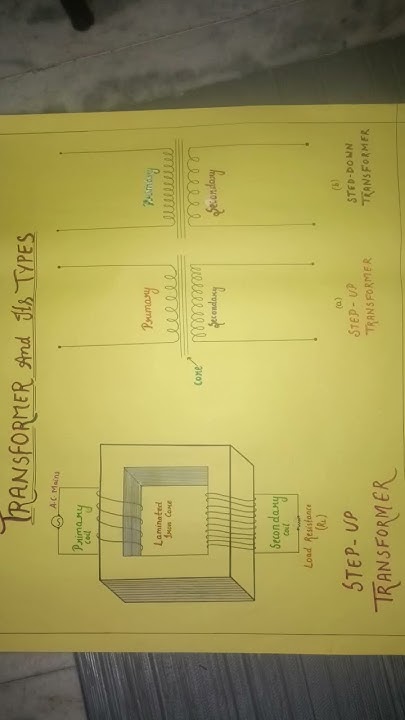 TRANSFORMER And Its TYPES
A.C Mains
Primary
coil
Laminated
Iron Core
Secondary
coil
Load Resistance
(RL)
STEP-UP
TRANSFORMER
Primary
CORE
Secondary
(a)
STEP-UP
TRANSFORMER
Primary
Secondary
(b)
STED-DOWN
TRANSFORMER